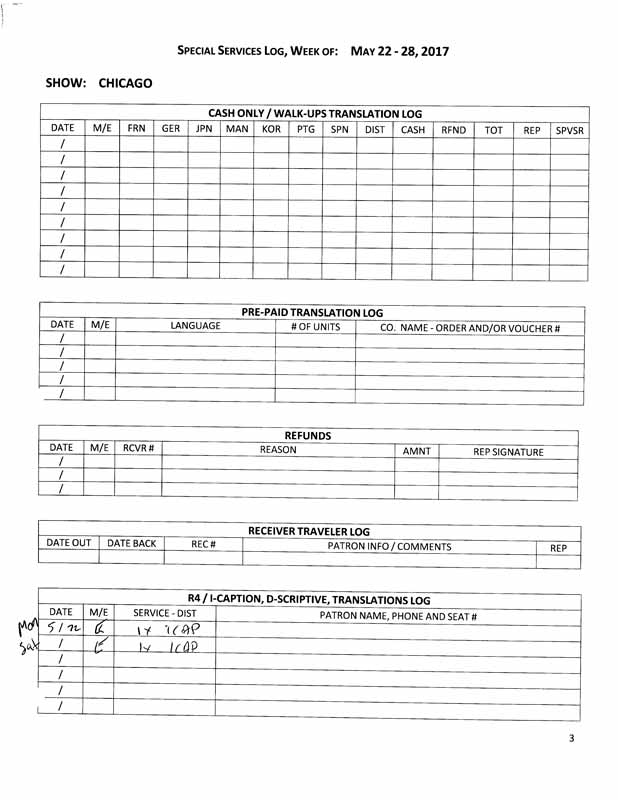 SPECIAL SERVICES LOG, WEEK OF: MAY 22 - 28, 2017
SHOW: CHICAGO
CASH ONLY / WALK-UPS TRANSLATION LOG
DATE M/E FRN GER JPN MAN KOR PTG SPN DIST CASH RFND TOT REP SPVSR
/
/
/
/
/
/
/
/
/
PRE-PAID TRANSLATION LOG
DATE M/E LANGUAGE # OF UNITS CO. NAME - ORDER AND/OR VOUCHER #
/
/
/
/
/
REFUNDS
DATE M/E RCVR # REASON AMNT REP SIGNATURE
/
/
/
RECEIVER TRAVELER LOG
DATE OUT DATE BACK REC # PATRON INFO / COMMENTS REP
R4 / I-CAPTION, D-SCRIPTIVE, TRANSLATIONS LOG
DATE M/E SERVICE - DIST PATRON NAME, PHONE AND SEAT #
Mon 5/22 E 1x ICAP
Sat / E 1x ICAP
/
/
/
/
3